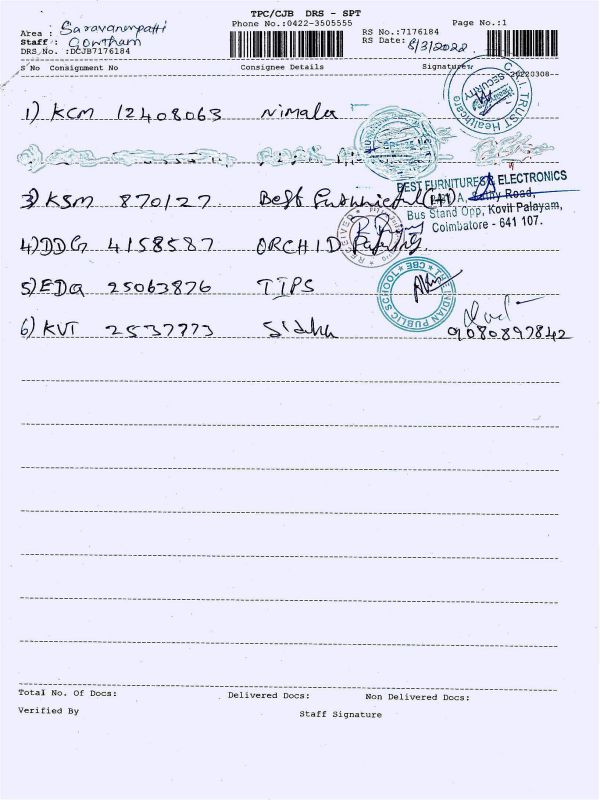 TPC/CJB DRS - SPT
Phone No.:0422-3505555
Page No.:1
Area : Saravanampatti
Staff : Gowtham
DRS/No. :DCJB7176184
RS No.:7176184
RS Date: 8/3/2022
S No Consignment No Consignee Details Signature
20220308--
C.M.I. TRUST Healthcare
SECURITY
1) KCM 12408063 Nimala
3) KSM 870127 Best
BEST FURNITURES & ELECTRONICS
Road,
Bus Stand Opp, Kovil Palayam,
Coimbatore - 641 107.
RECEIVED
4) DDG 4158587 ORCHID
5) EDQ 25063876 TIPS
THE INDIAN PUBLIC SCHOOL CBE
6) KVT 2537773
9080897842
Total No. Of Docs: Delivered Docs: Non Delivered Docs:
Verified By Staff Signature